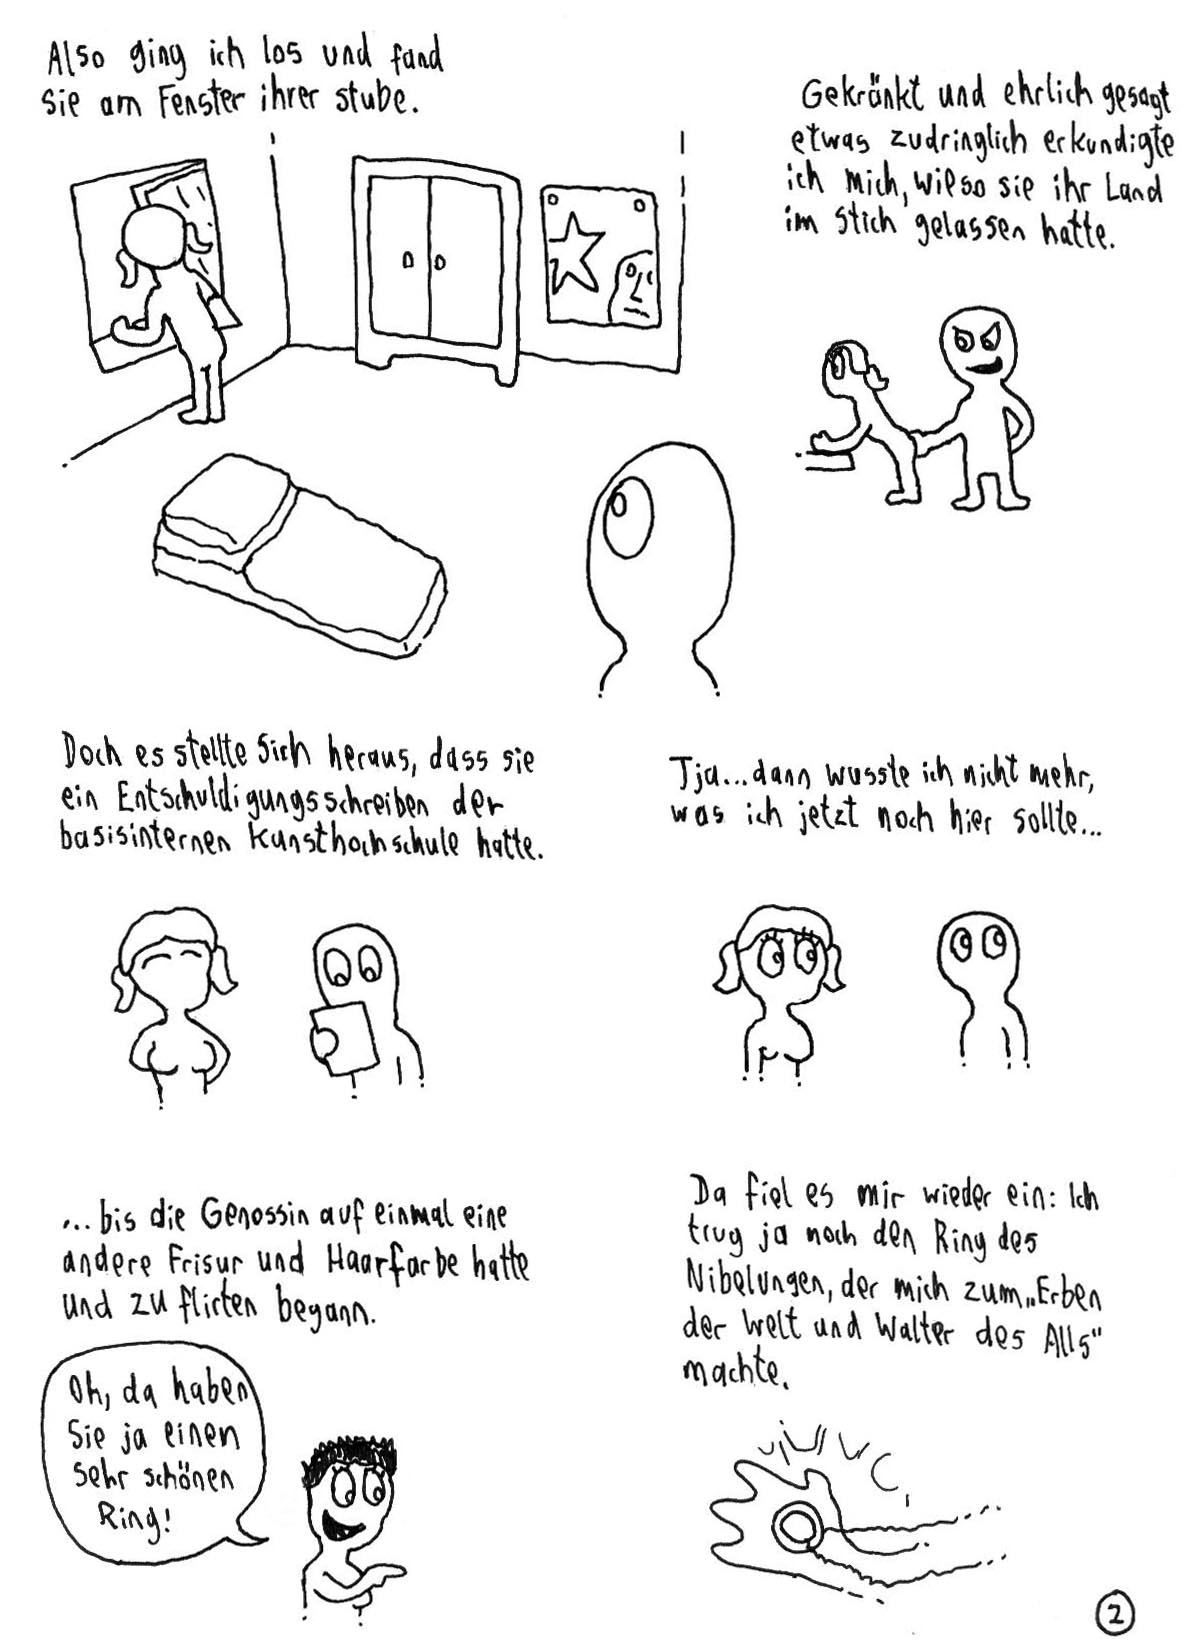 Also ging ich los und fand
sie am Fenster ihrer stube.
Gekränkt und ehrlich gesagt
etwas zudringlich erkundigte
ich mich, wieso sie ihr Land
im Stich gelassen hatte.
Doch es stellte sich heraus, dass sie
ein Entschuldigungsschreiben der
basisinternen Kunsthochschule hatte.
Tja...dann wusste ich nicht mehr,
was ich jetzt noch hier sollte...
...bis die Genossin auf einmal eine
andere Frisur und Haarfarbe hatte
und zu flirten begann.
Oh, da haben
Sie ja einen
sehr schönen
Ring!
Da fiel es mir wieder ein: Ich
trug ja noch den Ring des
Nibelungen, der mich zum „Erben
der Welt und Walter des Alls"
machte.
2